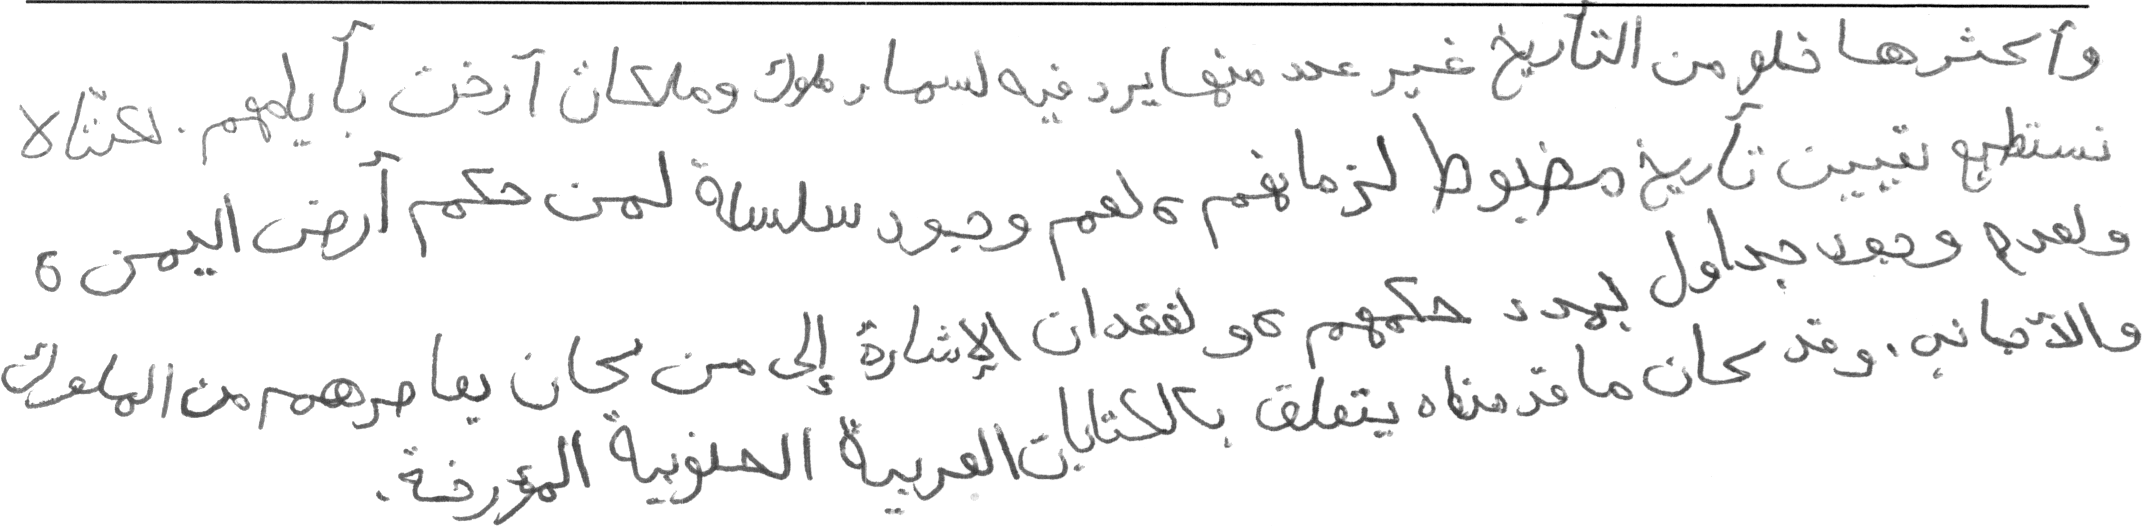 وأكثرها خلو من التأريخ غير عدد منها يرد فيه اسماء ملوك وملكات أرخت بأيامهم. لكنّنا لا
نستطيع تعيين تأريخ مضبوط لزمانهم، لعدم وجود سلسلة لمن حكم أرض اليمن،
ولعدم وجود جداول لمدد حكمهم، ولفقدان الإشارة إلى من كان يعاصرهم من الملوك
والأجانب. وقد كان ما قدمناه يتعلق بالكتابات العربية الجنوبية المؤرخة.